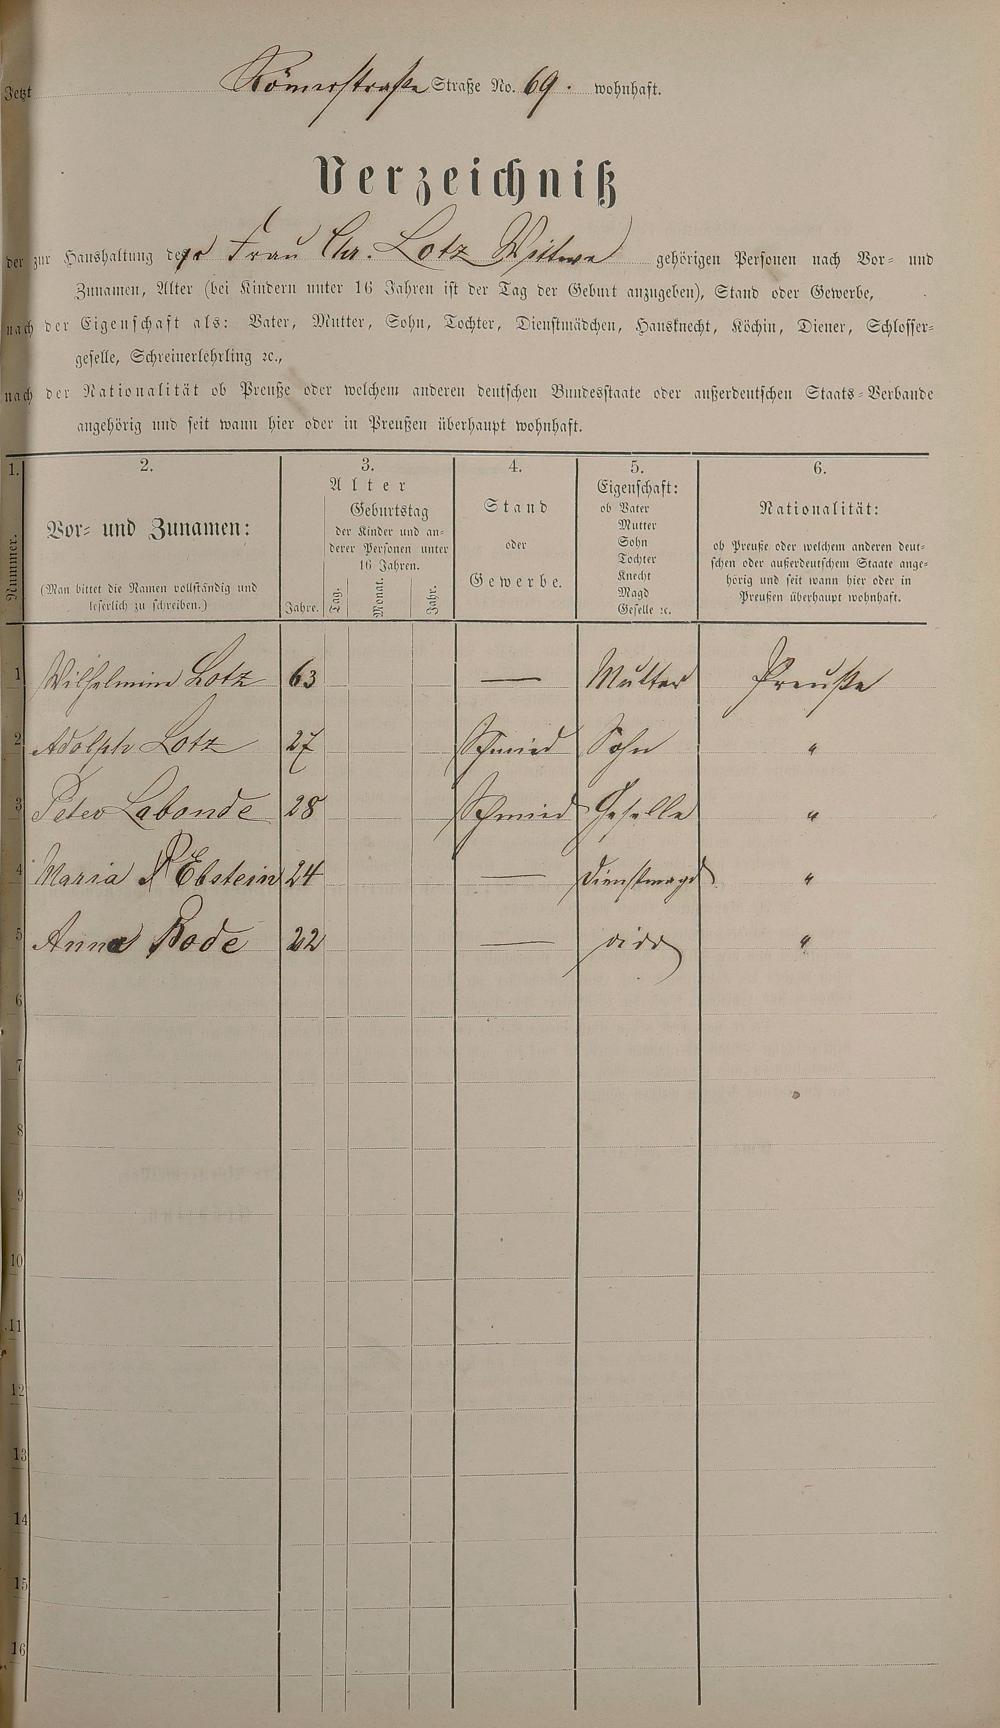 Jetzt Römerstraße Straße No. 69. wohnhaft.
Verzeichniß
der zur Haushaltung der Frau Chr. Lotz Wittwe gehörigen Personen nach Vor- und
Zunamen, Alter (bei Kindern unter 16 Jahren ist der Tag der Geburt anzugeben), Stand oder Gewerbe,
nach der Eigenschaft als: Vater, Mutter, Sohn, Tochter, Dienstmädchen, Hausknecht, Köchin, Diener, Schlosser-
geselle, Schreinerlehrling ꝛc.,
nach der Nationalität ob Preuße oder welchem anderen deutschen Bundesstaate oder außerdeutschen Staats-Verbande
angehörig und seit wann hier oder in Preußen überhaupt wohnhaft.
1. 2. 3. 4. 5. 6.
Nummer.
Vor- und Zunamen:
(Man bittet die Namen vollständig und
leserlich zu schreiben.)
Alter
Jahre.
Geburtstag
der Kinder und an-
derer Personen unter
16 Jahren.
Tag. Monat. Jahr.
Stand
oder
Gewerbe.
Eigenschaft:
ob Vater
Mutter
Sohn
Tochter
Knecht
Magd
Geselle ꝛc.
Nationalität:
ob Preuße oder welchem anderen deut-
schen oder außerdeutschem Staate ange-
hörig und seit wann hier oder in
Preußen überhaupt wohnhaft.
1 Wilhelmine Lotz 63 — Mutter Preuße
2 Adolph Lotz 27 Schmied Sohn "
3 Peter Labonde 28 Schmied Geselle "
4 Maria Ebstein 24 — Dienstmagd "
5 Anna Rode 22 — "
6
7
8
9
10
11
12
13
14
15
16